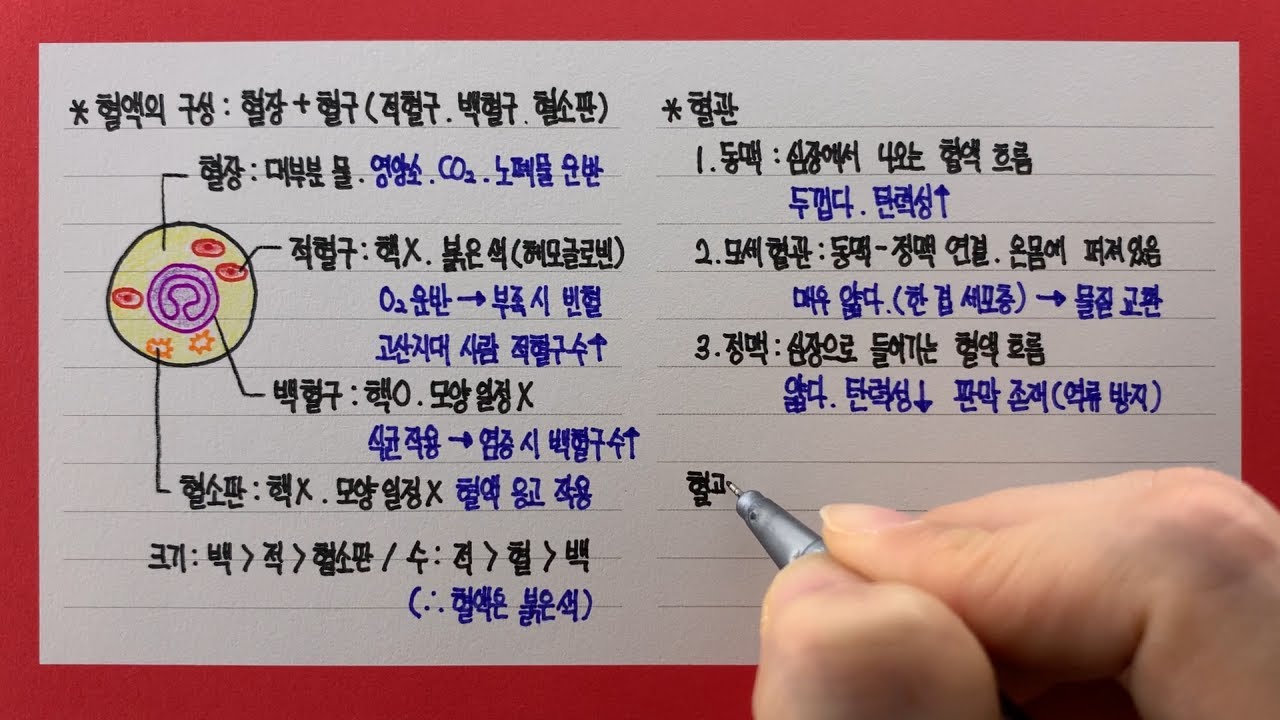 * 혈액의 구성 : 혈장 + 혈구 (적혈구. 백혈구. 혈소판)
혈장 : 대부분 물. 영양소. CO₂. 노폐물 운반
적혈구 : 핵X. 붉은 색 (헤모글로빈)
O₂ 운반 → 부족 시 빈혈
고산지대 사람 적혈구 수↑
백혈구 : 핵O. 모양 일정 X
식균 작용 → 염증 시 백혈구 수↑
혈소판 : 핵X. 모양 일정 X 혈액 응고 작용
크기 : 백 > 적 > 혈소판 / 수 : 적 > 혈 > 백
(∴ 혈액은 붉은색)
* 혈관
1. 동맥 : 심장에서 나오는 혈액 흐름
두껍다. 탄력성↑
2. 모세혈관 : 동맥 - 정맥 연결. 온몸에 퍼져 있음
매우 얇다. (한 겹 세포층) → 물질 교환
3. 정맥 : 심장으로 들어가는 혈액 흐름
얇다. 탄력성↓ 판막 존재 (역류 방지)
혈고